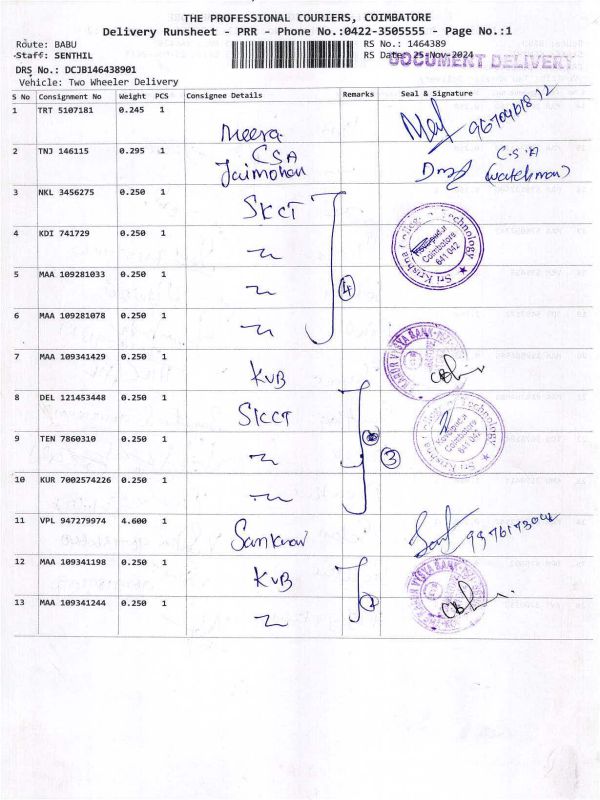 THE PROFESSIONAL COURIERS, COIMBATORE
Delivery Runsheet - PRR - Phone No.:0422-3505555 - Page No.:1
Route: BABU
RS No.: 1464389
Staff: SENTHIL
RS Date: 25-Nov-2024
DOCUMENT DELIVERY
DRS No.: DCJB146438901
Vehicle: Two Wheeler Delivery
S No Consignment No Weight PCS Consignee Details Remarks Seal & Signature
1 TRT 5107181 0.245 1 Meera
2 TNJ 146115 0.295 1 CSA C.S.A
Jaimohan (watchman)
3 NKL 3456275 0.250 1 SKCT
4 KDI 741729 0.250 1
Sri Krishna College of Technology
Coimbatore
641 042
5 MAA 109281033 0.250 1
4
6 MAA 109281078 0.250 1
7 MAA 109341429 0.250 1 KVB
KARUR VYSYA BANK
8 DEL 121453448 0.250 1 SKCT
9 TEN 7860310 0.250 1
3
Technology
Coimbatore
10 KUR 7002574226 0.250 1
11 VPL 947279974 4.600 1
12 MAA 109341198 0.250 1 KVB
KARUR VYSYA BANK
13 MAA 109341244 0.250 1